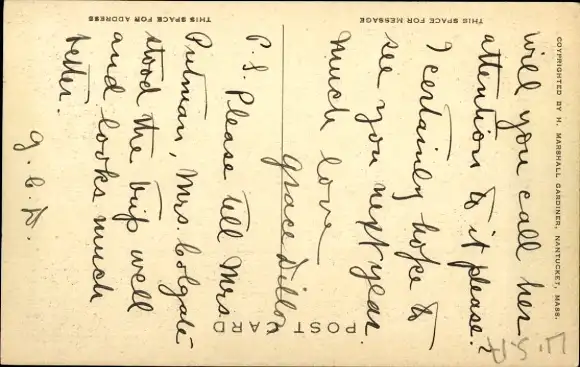 COPYRIGHTED BY H. MARSHALL GARDINER, NANTUCKET, MASS.
will you call her
attention to it please?
I certainly hope to
see you next year.
Much love
Grace Dillon
P.S. Please tell Mrs.
Putman, Mrs. Colgate
stood the trip well
and looks much
better.
G. C. D.
POST CARD
THIS SPACE FOR MESSAGE
THIS SPACE FOR ADDRESS